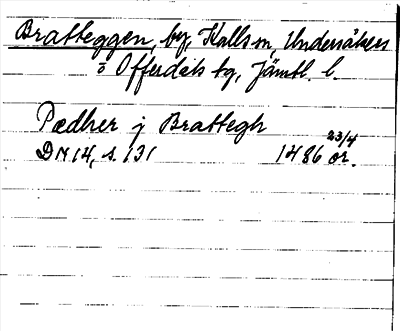 Bratteggen, by, Kalls sn, Undersåkers
o Offerdals tg, Jämtl. l.
Pædher j Brattegh
DN 14, s. 131 1486 23/4 or.